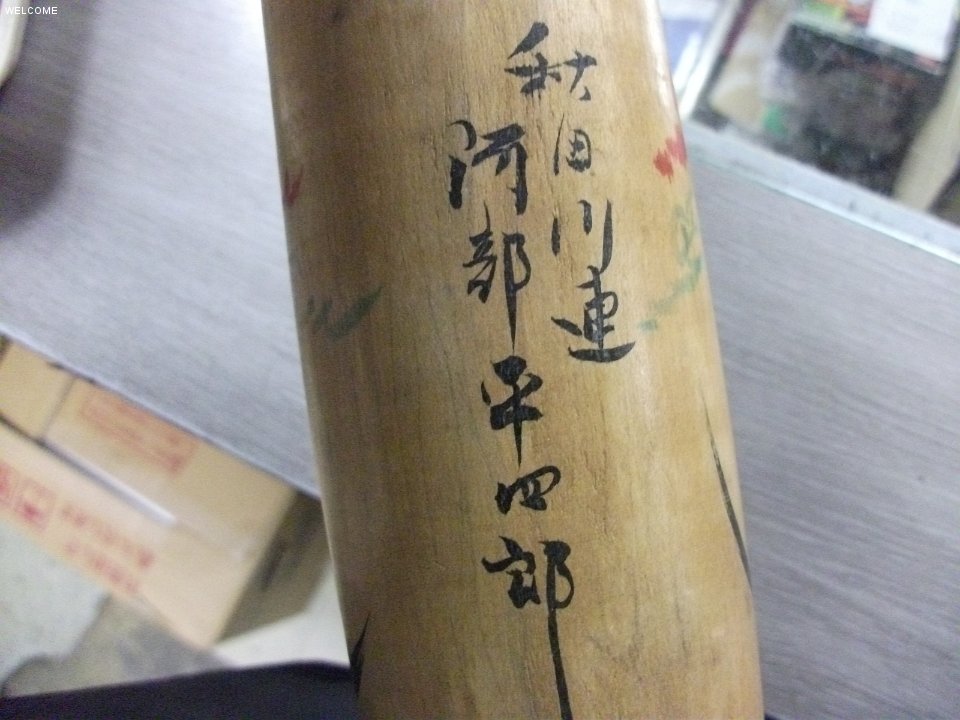 WELCOME
秋田川連
阿部平四郎